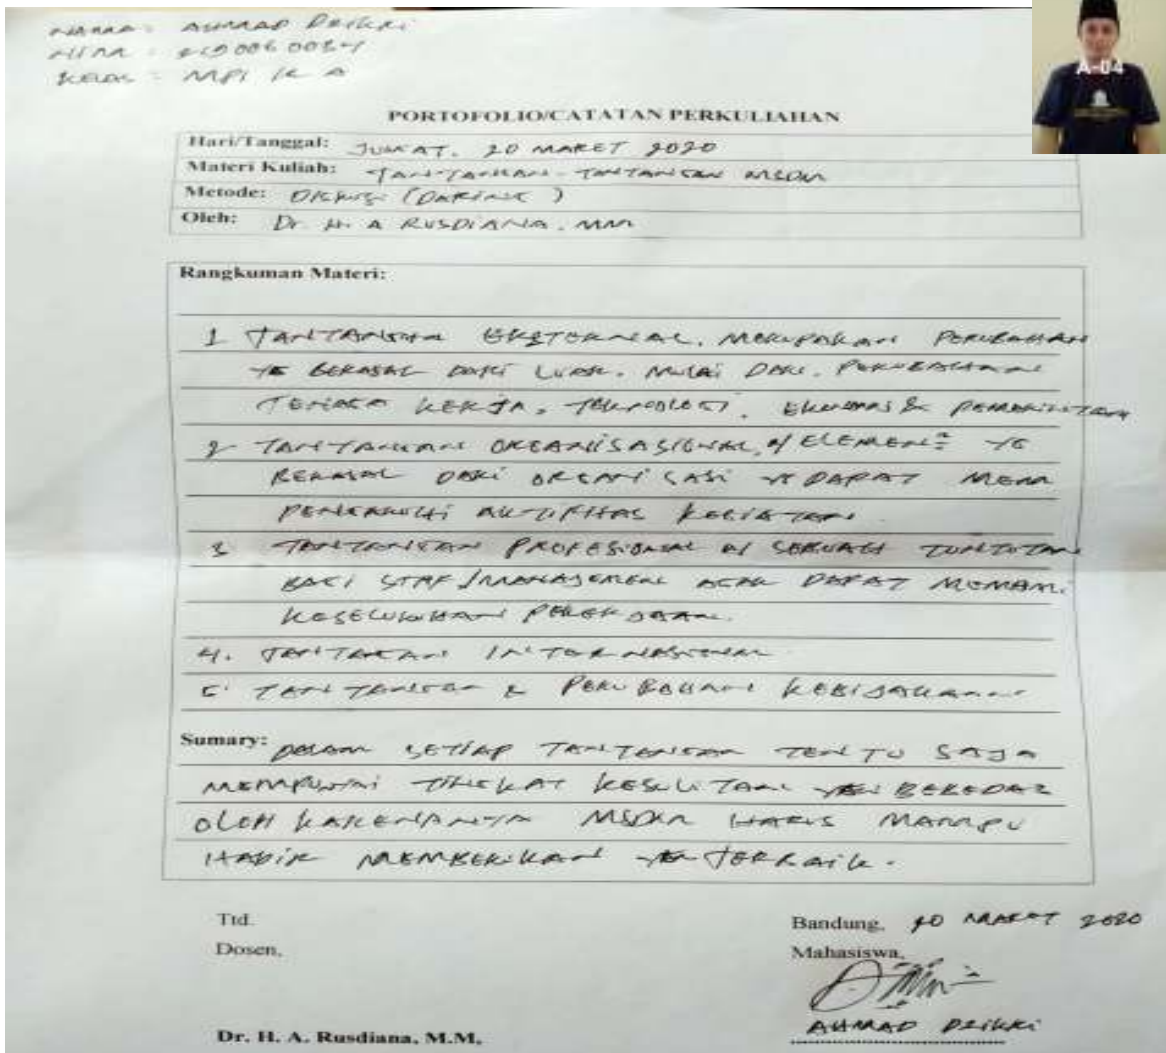 NAMA : AHMAD DZIKRI
NIM :
KELAS : MPI IV A
A-04
PORTOFOLIO/CATATAN PERKULIAHAN
Hari/Tanggal: JUMAT, 20 MARET 2020
Materi Kuliah: TANTANGAN-TANTANGAN MSDM
Metode: DISKUSI (DARING)
Oleh: Dr. H. A RUSDIANA, MM
Rangkuman Materi:
1 TANTANGAN EKSTERNAL, MERUPAKAN PERUBAHAN
YG BERASAL DARI LUAR. MULAI DARI, PERUBAHAN
TENAGA KERJA, TEKNOLOGI, EKONOMI & PEMERINTAH
2 TANTANGAN ORGANISASIONAL, a/ ELEMEN² YG
BERASAL DARI ORGANISASI YG DAPAT MEM
PENGARUHI AKTIFITAS KEGIATAN
3 TANTANGAN PROFESIONAL a/ SEBUAH TUNTUTAN
BAGI STAF/MANAJEMEN AGAR DAPAT MEMAMI
KESELURUHAN PEKERJAAN.
4. TANTANGAN INTERNASIONAL
5. TANTANGAN & PERUBAHAN KEBIJAKAN
Sumary: DALAM SETIAP TANTANGAN TENTU SAJA
MEMPUNYAI TINGKAT KESULITAN YG BERBEDA2
OLEH KARENANYA MSDM HARUS MAMPU
HADIR MEMBERIKAN YG TERBAIK.
Ttd.
Dosen,
Bandung, 20 MARET 2020
Mahasiswa,
Dr. H. A. Rusdiana, M.M.
AHMAD DZIKRI